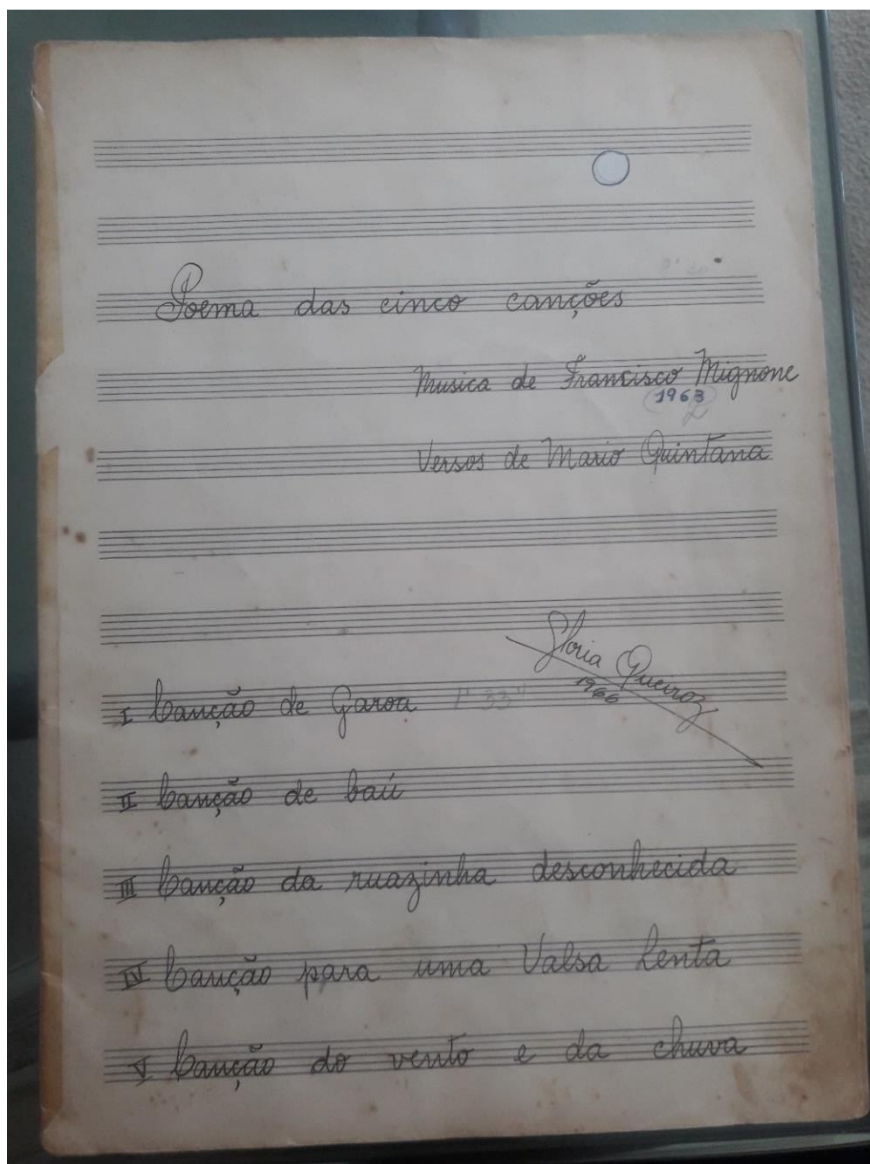 Poema das cinco canções
Musica de Francisco Mignone
1963
Versos de Mario Quintana
Gloria Queiroz
1966
I Canção de Garoa 1' 33"
II Canção de baú
III Canção da ruazinha desconhecida
IV Canção para uma Valsa Lenta
V Canção do vento e da chuva